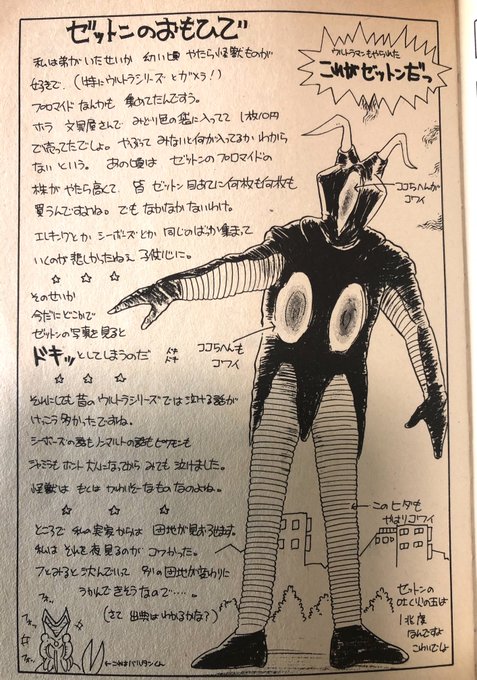 ゼットンのおもひで
私は弟がいたせいか 幼い頃 やたら怪獣ものが
好きで、(特にウルトラシリーズとガメラ!)
ブロマイドなんかも 集めてたんですう。
ホラ 文具屋さんで みどり色の袋に入ってて 1枚10円
で売ってたでしょ。やぶって みないと何か入ってるかわから
ないという。 あの頃は ゼットンのブロマイドの
株が やたら高くて 皆 ゼットン目あてに何枚も何枚も
買うんですよね。でも なかなかないわけ。
エレキングとか シーボーズとか 同じのばっか集まって
いくのが 悲しかったねェ 子供心に。
☆ ☆ ☆
そのせいか
今だにどこかで
ゼットンの写真を見ると
ドキッとしてしまうのだ ドキ ドキ
☆ ☆ ☆
それにしても 昔のウルトラシリーズでは 泣ける話が
けっこう多かったですね。
シーボーズの話も ノンマルトの話も ピグモンも
ジャミラも ホント 大人になってから みても 泣けました。
怪獣は もとは かわいそーなものなのよね。
☆ ☆ ☆
ところで 私の実家からは 団地が見おろせます。
私は それを夜見るのが コワかった。
フとみると 沈んでいって 別の団地が変わりに
うかんできそうなので……。
(さて 出典はわかるかな?)
フォッ
フォッ
←これはバルタンくん
ウルトラマンもやられた
これがゼットンだっ
ココらへんが
コワイ
ココらへんも
コワイ
←このヒダも
やはりコワイ
ゼットンの
吐く火の玉は
1兆度
なんですよ
こわいでしょ